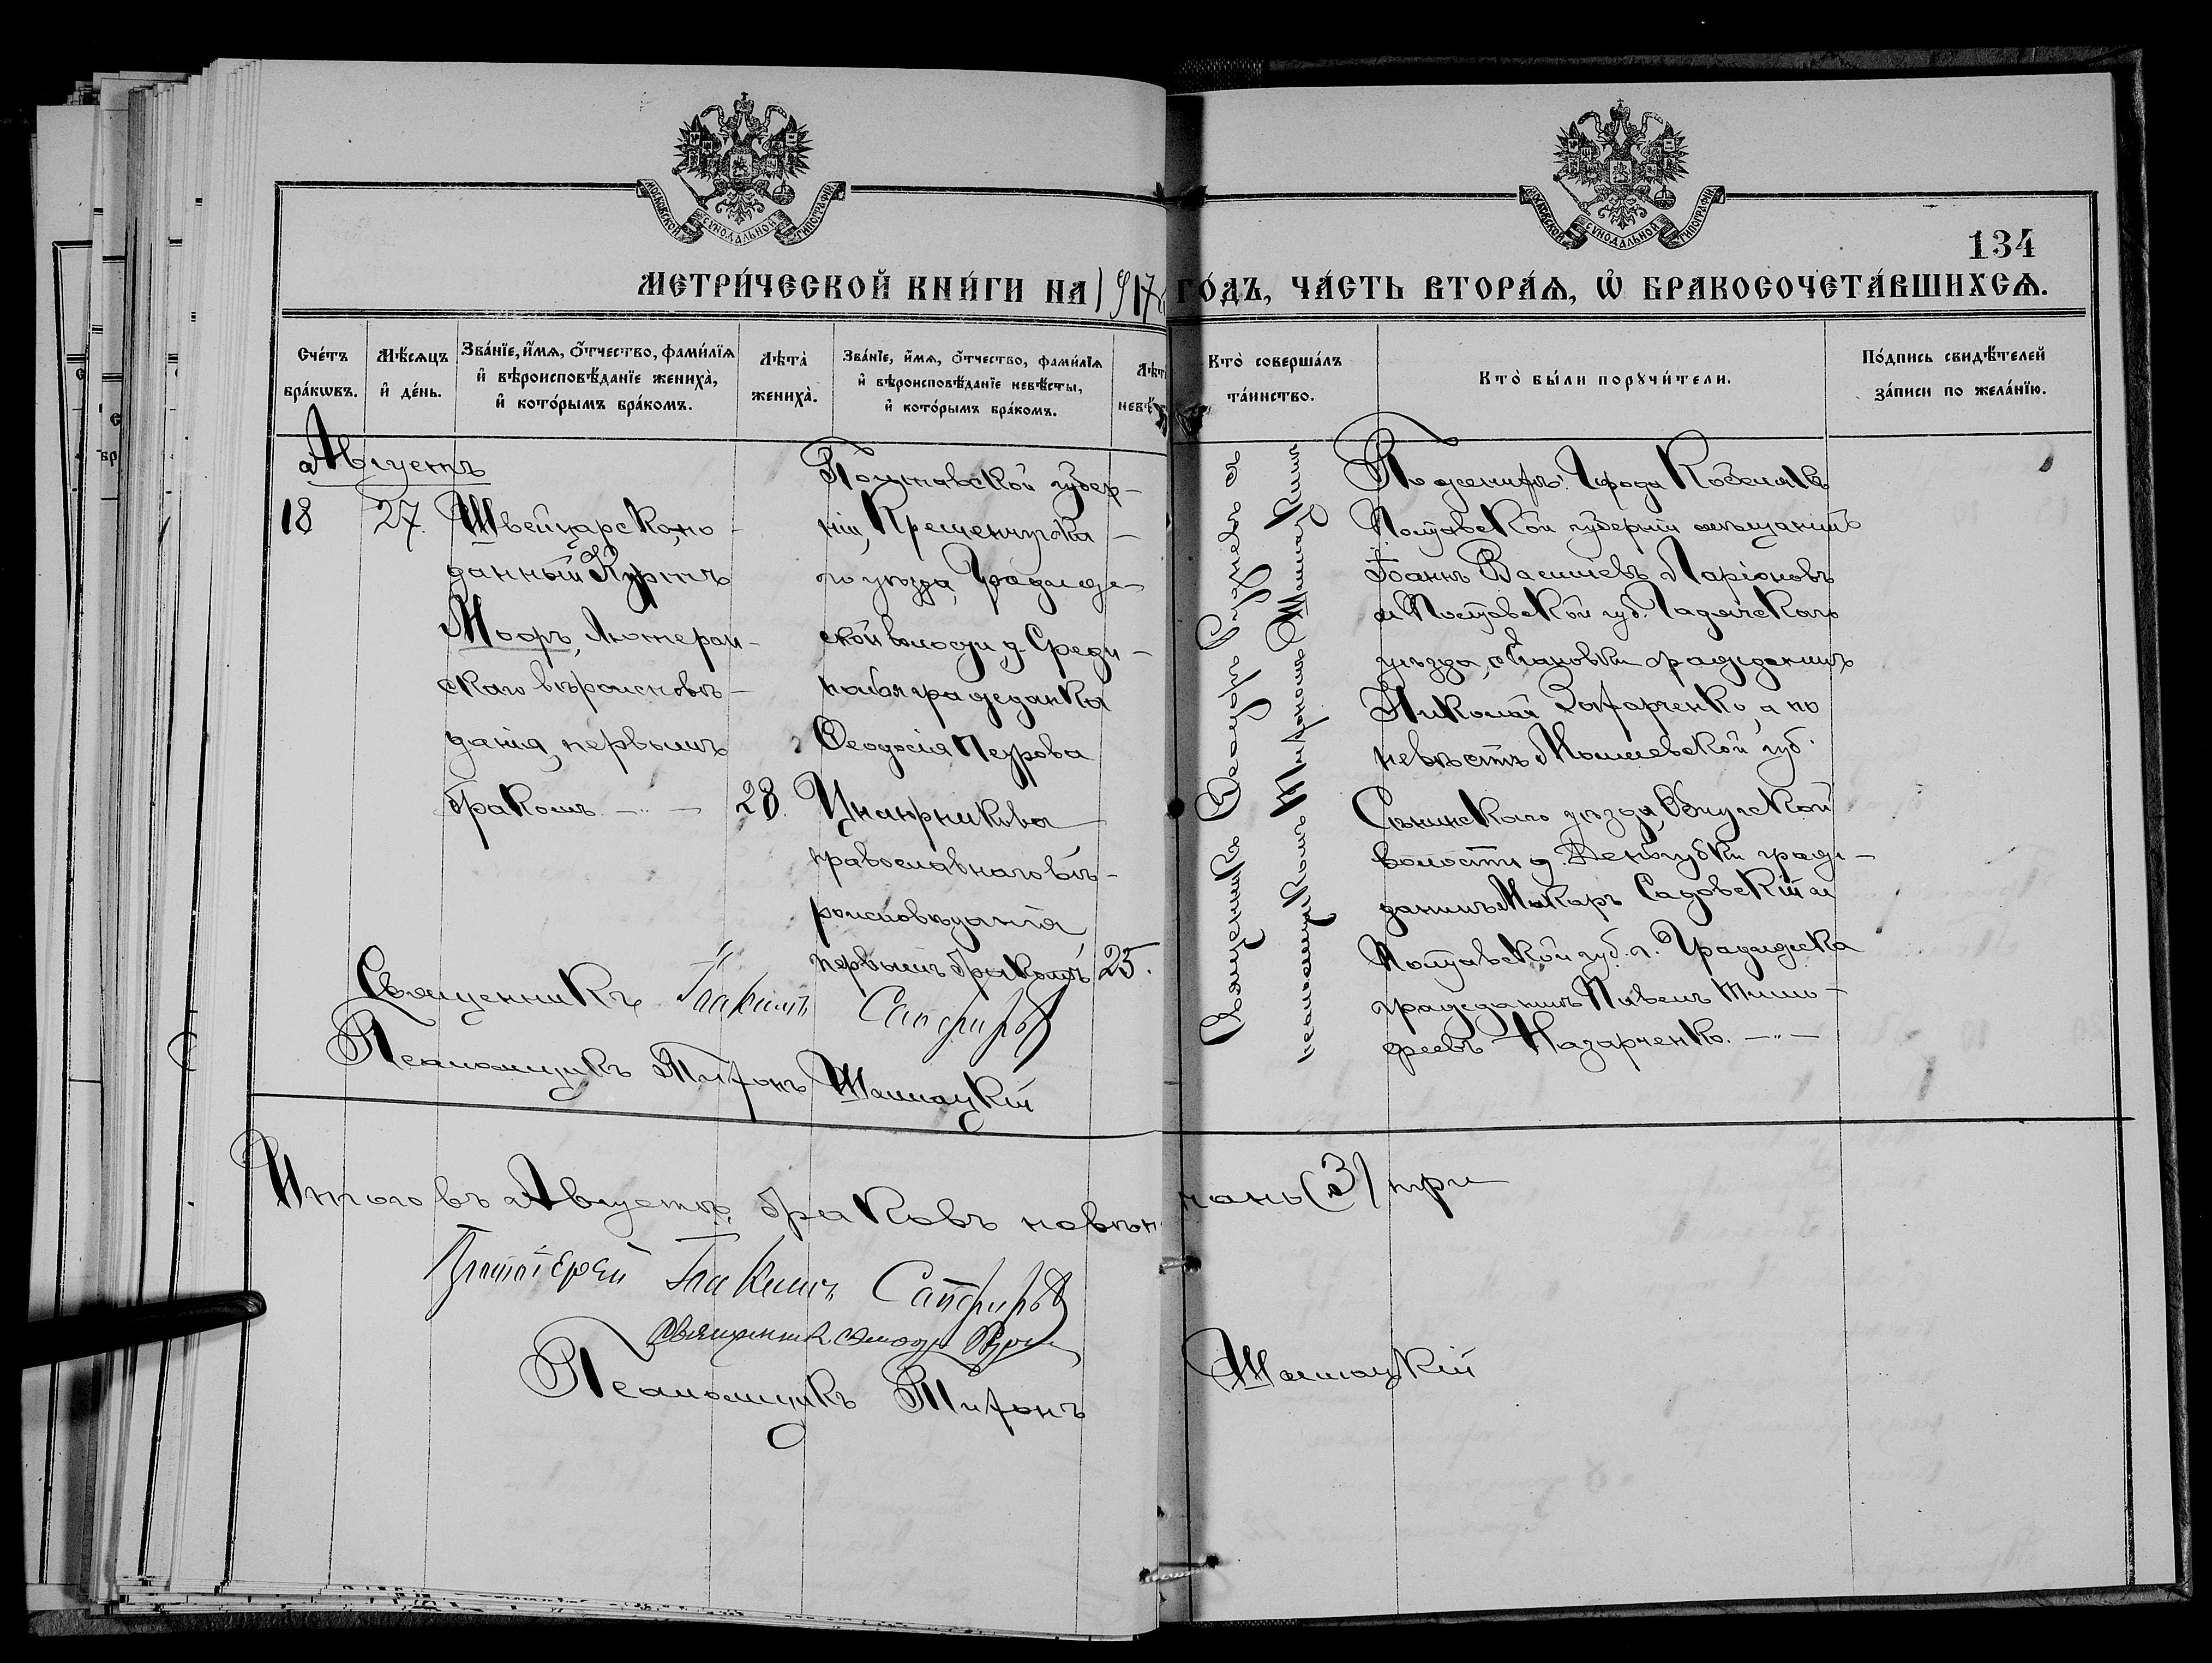 МОСКОВСКОЙ СѴНОДАЛЬНОЙ ТИПОГРАФІИ
МОСКОВСКОЙ СѴНОДАЛЬНОЙ ТИПОГРАФІИ
134
МЕТРИ́ЧЕСКОЙ КНИ́ГИ НА 1917 ГО́ДЪ, ЧА́СТЬ ВТОРА́Ѧ, Ѽ БРАКОСОЧЕТА́ВШИХСѦ.
Сче́тъ бра́кѡвъ.
Мѣ́сяцъ и҆ де́нь.
Зва́нїе, и҆́мѧ, ѻ҆́тчество, фами́лїѧ и҆ вѣроисповѣ́данїе жениха̀, и҆ кото́рымъ бра́комъ.
Лѣта̀ жениха̀.
Зва́нїе, и҆́мѧ, ѻ҆́тчество, фами́лїѧ и҆ вѣроисповѣ́данїе невѣ́сты, и҆ кото́рымъ бра́комъ.
Лѣт невѣ́
Кто̀ соверша́лъ та́инство.
Кто̀ бы́ли порꙋчи́тели.
По́дпись свидѣ́телей за́писи по жела́нїю.
Августъ
18
27.
Швейцарско-по-
данный Куртъ
Мооръ, Лютеран-
скаго вѣроисповѣ-
данія, первымъ
бракомъ
28.
Полтавской губер-
ніи, Кременчугска-
го уѣзда, Градиж-
ской волости д. Среди-
гражданка
Ѳеодосія Петрова
православнаго вѣ-
роисповѣданія,
первымъ бракомъ
25.
Священникъ Ѳеодоръ съ
псаломщикомъ Шашацкимъ
По женихѣ: Города Кобелякъ
Полтавской губерніи мѣщанинъ
Іоаннъ Василіевъ Ларіоновъ
и Полтавской губ. Гадячскаго
уѣзда, гражданинъ
Николай Захарченко, а по
невѣстѣ Могилевской губ.
Сѣнинскаго уѣзда, Обчугской
волости д. граж-
данинъ Макаръ Садовскій и
Полтавской губ. г. Градижска
гражданинъ Павелъ Тимо-
феевъ Назарченко.
Священникъ Іоакимъ Сапфировъ
Псаломщикъ Шашацкій
Итого въ Августѣ браковъ повѣнчано (3) три
Протоіерей Іоакимъ Сапфировъ
Священникъ
Псаломщикъ Шашацкій